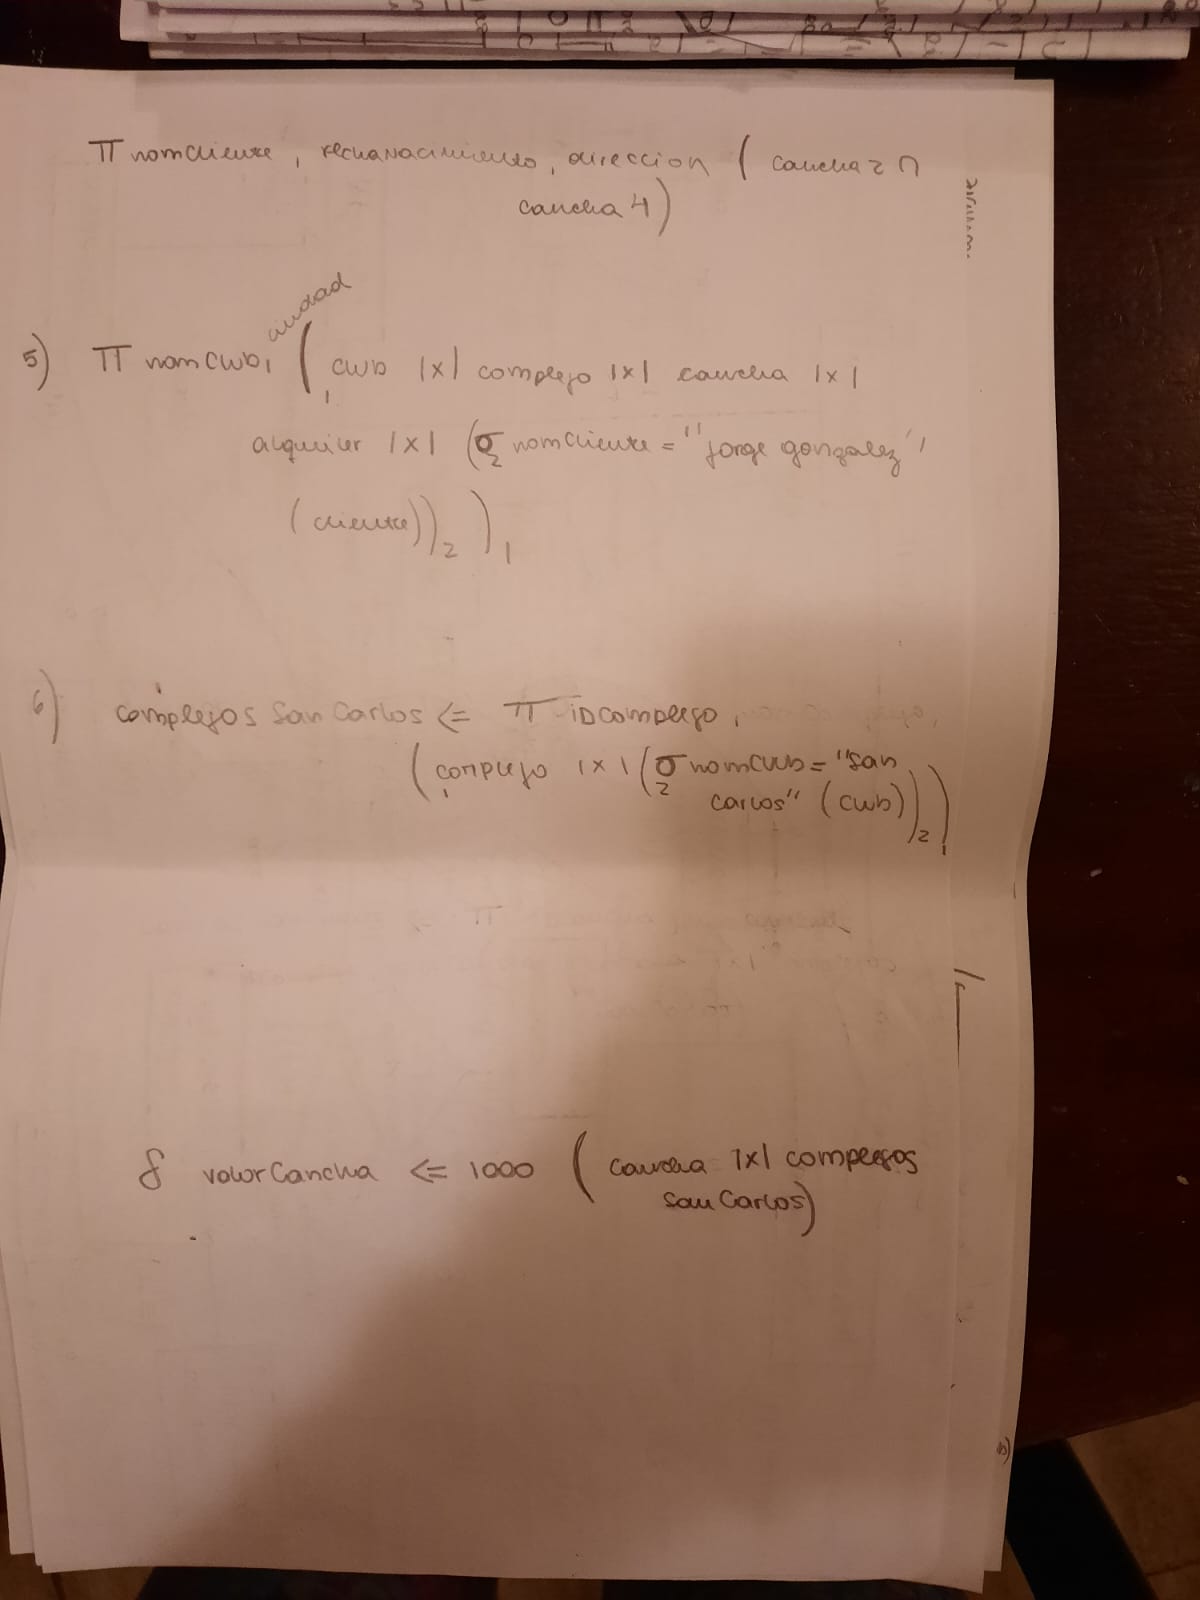 π nomcliente, fechanacimiento, direccion ( cancha 2 ∩
cancha 4)
ciudad
5) π nomClub, ( club |x| complejo |x| cancha |x|
1
alquiler |x| (σ nomcliente = "Jorge gonzalez"
2
(cliente))2 )1
6) complejos San Carlos <= π idcomplejo,
(complejo |x| (σ nomclub = "San
1 2
carlos" (club))2 )1
δ valorCancha <= 1000 ( cancha |x| complejos
San Carlos)